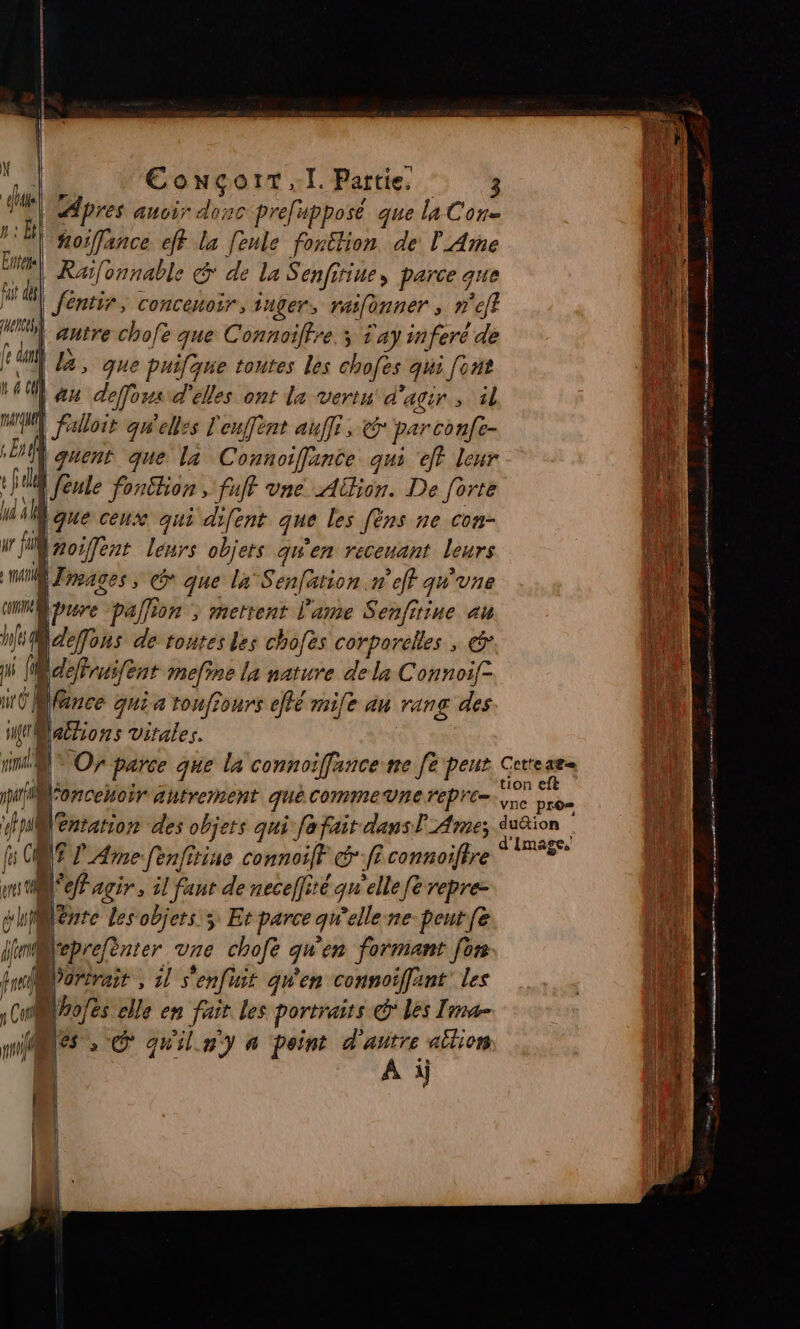 CONÇOIT, I. Partie. 3
Apres auoir donc presupposé que la Con-
noiſſance eſt la ſeule fonction de l'Ame
Raiſonnable & de la Senſitiue, parce que
ſentir, conceuoir, iuger, raiſonner, n'eſt
autre choſe que Connoiſtre; i'ay inferé de
là, que puiſque toutes les choſes qui ſont
au deſſous d'elles ont la vertu d'agir, il
falloit qu'elles l'euſſent auſſi, & par conſe-
quent que la Connoiſſance qui eſt leur
ſeule fonction, fuſt vne Action. De ſorte
que ceux qui diſent que les ſens ne con-
noiſſent leurs objets qu'en receuant leurs
Images, & que la Senſation n'eſt qu'vne
pure paſſion, mettent l'ame Senſitiue au
deſſous de toutes les choſes corporelles, &
deſtruiſent meſme la nature de la Connoiſ-
ſance qui a touſiours eſté miſe au rang des
actions vitales.
Or parce que la connoiſſance ne ſe peut
conceuoir autrement que comme vne repre-
ſentation des objets qui ſe fait dans l'Ame;
l'Ame ſenſitiue connoiſt & ſi connoiſtre
c'eſt agir, il faut de neceſſité qu'elle ſe repre-
ſente les objets; Et parce qu'elle ne peut ſe
repreſenter vne choſe qu'en formant ſon
Portrait, il s'enſuit qu'en connoiſſant les
choſes elle en fait les portraits & les Ima-
ges, & qu'il n'y a point d'autre action
A ij
Cette ac-
tion eſt
vne pro-
duction
d'Image.